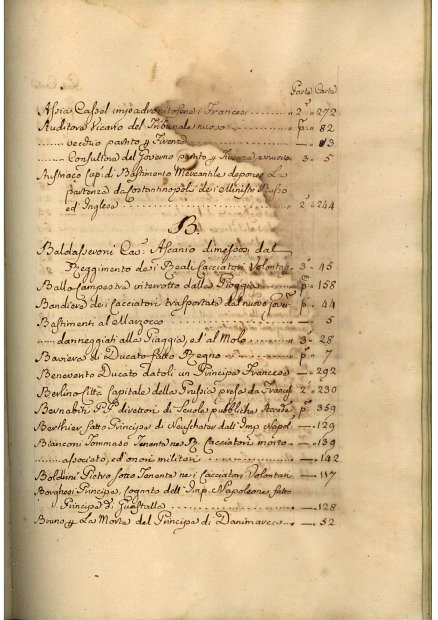 Parte Carte
Assia Cassel impadronitosene i Francesi 2ª 272
Auditore Vicario del Tribunale nuovo pª 82
vecchio partito pr Firenze 83
Consultore del Governo partito pr Firenze, 3ª 5
Austriaco Cap. di Bastimento Mercantile depone la
partenza da Costantinopoli dei Ministri Russo
ed Inglese 2ª 244
B.
Baldasseroni Cav. Ascanio dimessosi dal
Reggimento dei Reali Cacciatori Volontar 3ª 45
Ballo campestre interrotto dalla Pioggia pª 158
Bandiere dei Cacciatori trasportate dal nuovo Gover pª 44
Bastimenti al Marzocco 5
danneggiati alla Piaggia, ed al Molo 3ª 28
Baviera di Ducato fatto Regno pª 7
Benevento Ducato datoli un Principe Francese 292
Berlino Città Capitale della Prussia presa da Francesi 2ª 230
Bernabiti PP. direttori di Scuole pubbliche pª 359
Berthier fatto Principe di Neufchatel dall' Imp. Napol. 129
Bianconi Tommaso Tenente nei R. Cacciatori morto 139
associato, ed onori militari 142
Boldrini Pietro sotto Tenente nei Cacciatori Volontari 117
Borghesi Principe, Cognato dell' Imp. Napoleone, fatto
Principe di Guastalla 128
Bruno pr La Morte del Principe di Danimarca 52